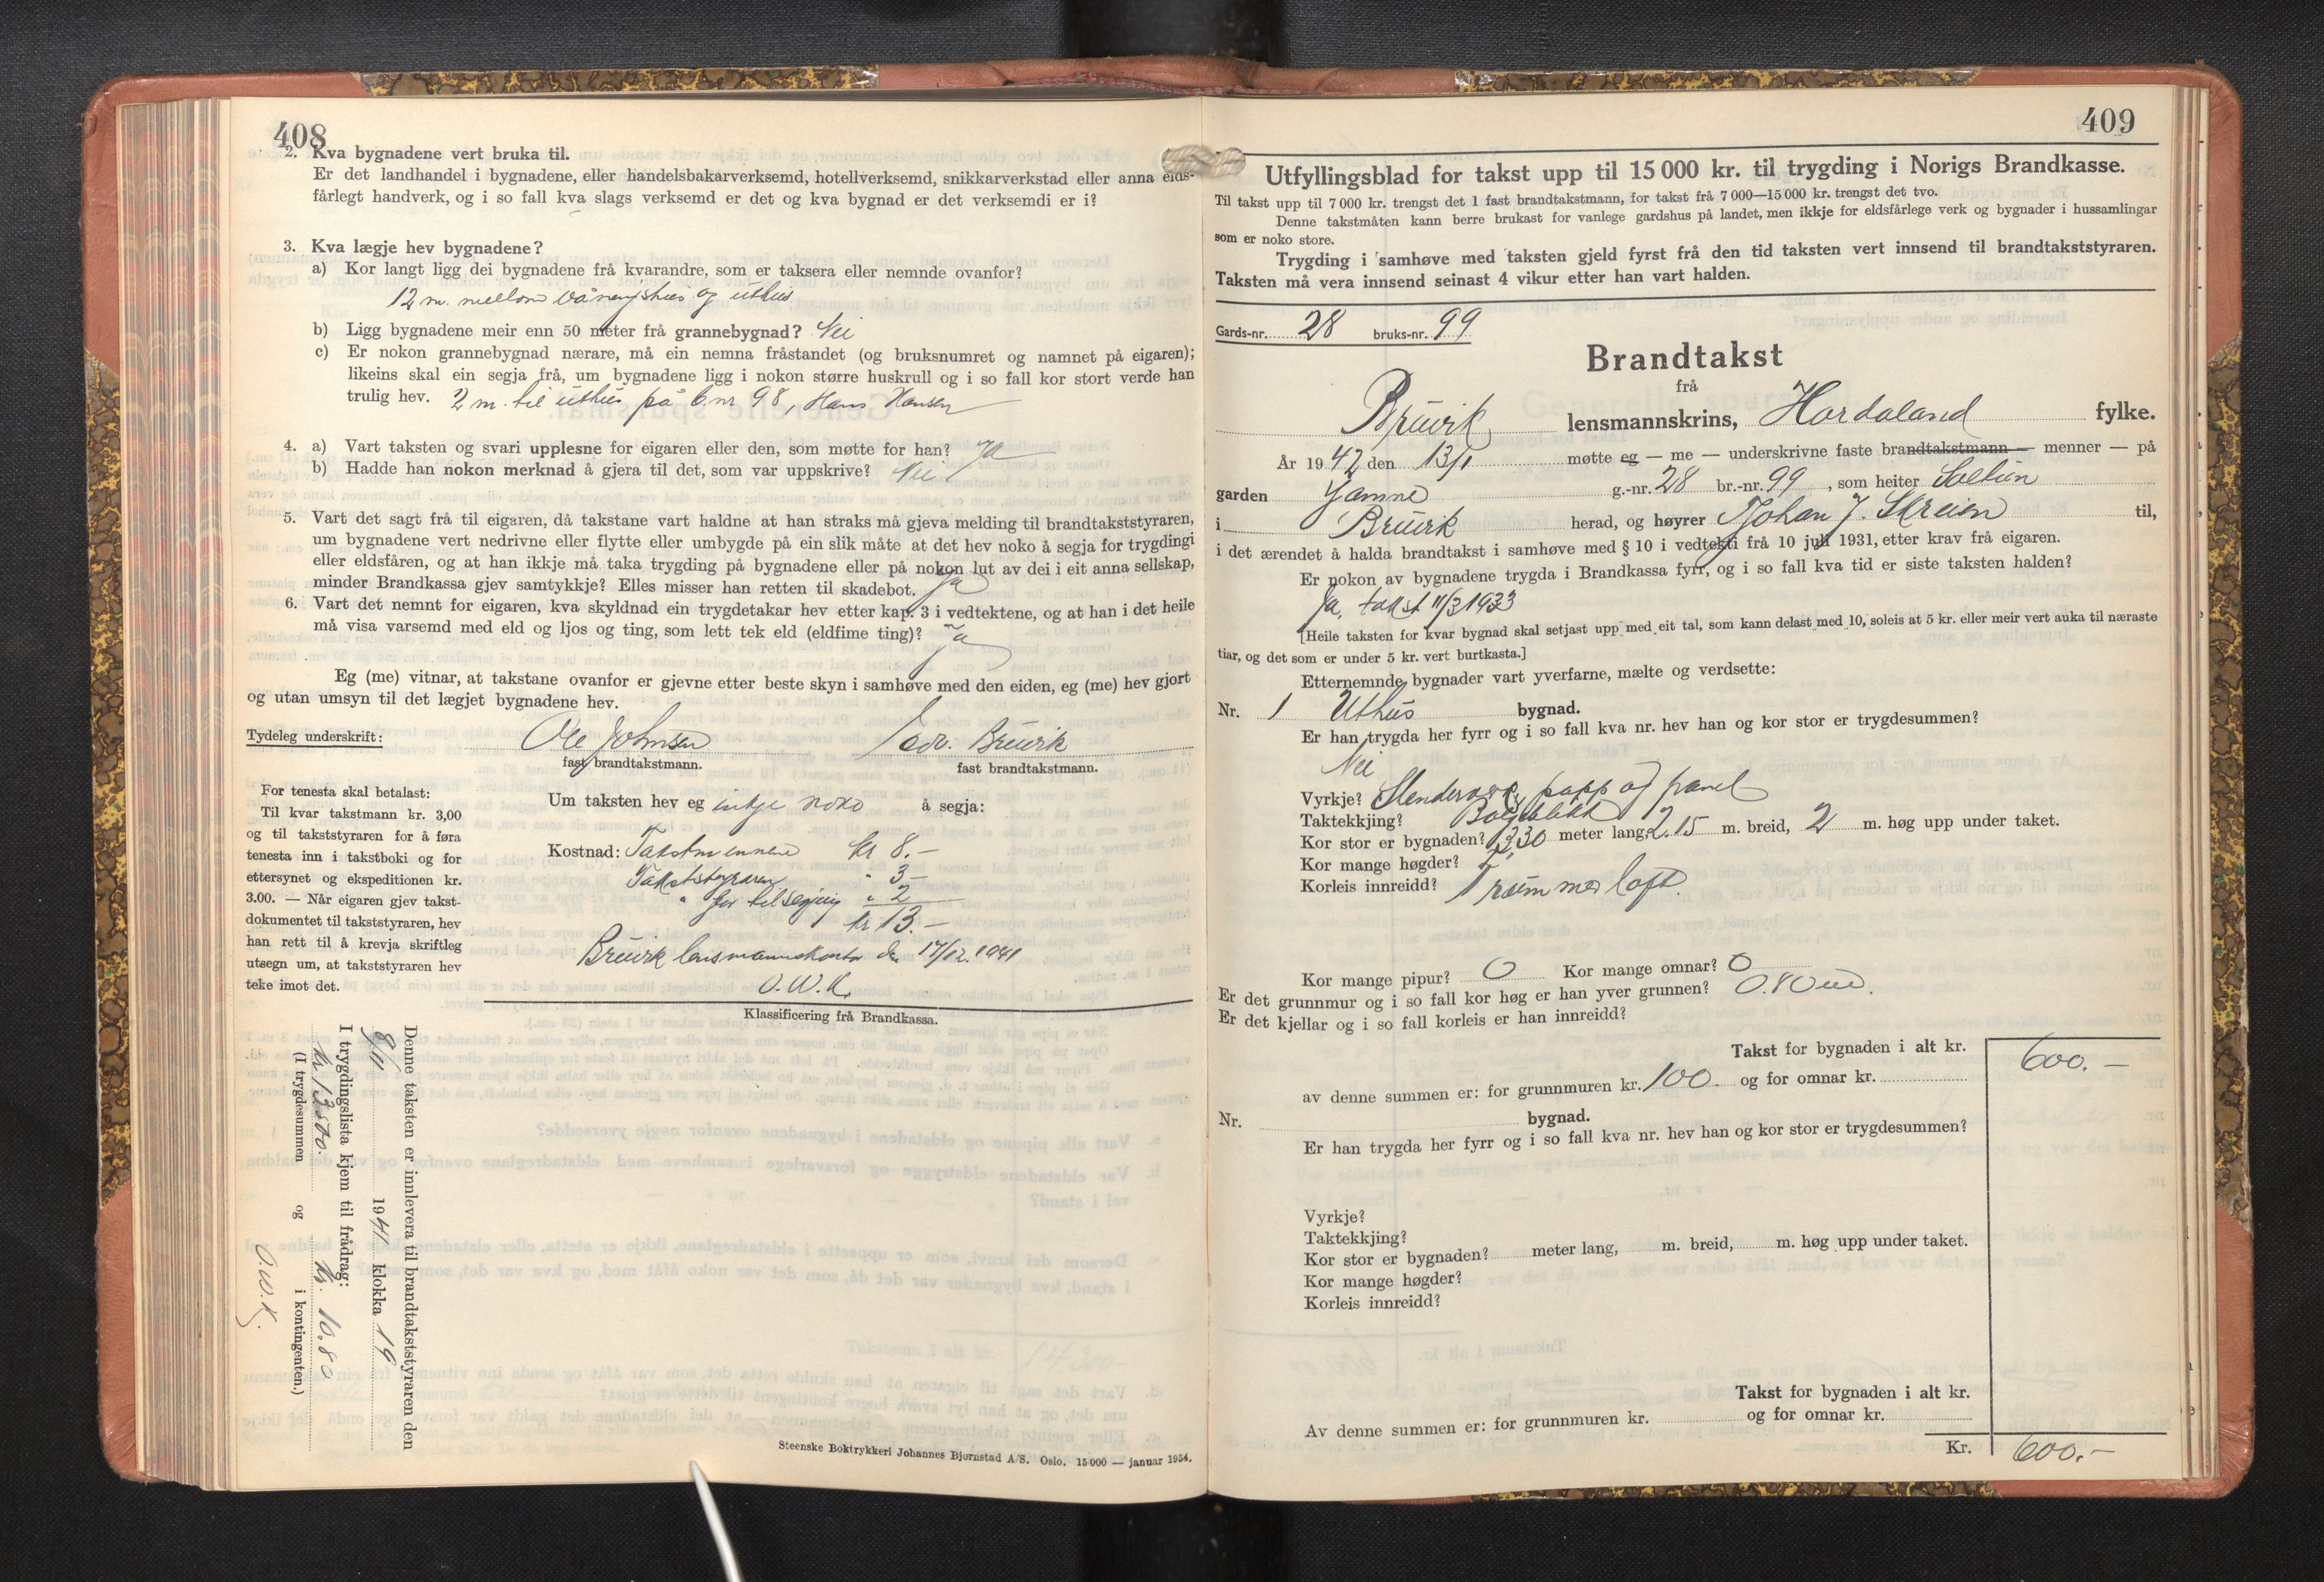 408
2. Kva bygnadene vert bruka til.
Er det landhandel i bygnadene, eller handelsbakarverksemd, hotellverksemd, snikkarverkstad eller anna elds-
fårlegt handverk, og i so fall kva slags verksemd er det og kva bygnad er det verksemdi er i?
3. Kva lægje hev bygnadene?
a) Kor langt ligg dei bygnadene frå kvarandre, som er taksera eller nemnde ovanfor?
12 m. mellom våningshus og uthus.
b) Ligg bygnadene meir enn 50 meter frå grannebygnad? Nei
c) Er nokon grannebygnad nærare, må ein nemna fråstandet (og bruksnumret og namnet på eigaren);
likeins skal ein segja frå, um bygnadene ligg i nokon større huskrull og i so fall kor stort verde han
trulig hev. 2 m. til uthus på b.nr 98, Hans Hansen
4. a) Vart taksten og svari upplesne for eigaren eller den, som møtte for han? Ja
b) Hadde han nokon merknad å gjera til det, som var uppskrive? Nei
5. Vart det sagt frå til eigaren, då takstane vart haldne at han straks må gjeva melding til brandtakststyraren,
um bygnadene vert nedrivne eller flytte eller umbygde på ein slik måte at det hev noko å segja for trygdingi
eller eldsfåren, og at han ikkje må taka trygding på bygnadene eller på nokon lut av dei i eit anna sellskap,
minder Brandkassa gjev samtykkje? Elles misser han retten til skadebot. Ja
6. Vart det nemnt for eigaren, kva skyldnad ein trygdetakar hev etter kap. 3 i vedtektene, og at han i det heile
må visa varsemd med eld og ljos og ting, som lett tek eld (eldfime ting)? Ja
Eg (me) vitnar, at takstane ovanfor er gjevne etter beste skyn i samhøve med den eiden, eg (me) hev gjort
og utan umsyn til det lægjet bygnadene hev.
Tydeleg underskrift: Ole Johnsen Edv. Bruvik
fast brandtakstmann. fast brandtakstmann.
For tenesta skal betalast:
Til kvar takstmann kr. 3,00
og til takststyraren for å føra
tenesta inn i takstboki og for
ettersynet og ekspeditionen kr.
3.00. — Når eigaren gjev takst-
dokumentet til takststyraren, hev
han rett til å krevja skriftleg
utsegn um, at takststyraren hev
teke imot det.
Um taksten hev eg intje noko å segja:
Kostnad: Takstmennene kr 8.-
Takststyraren " 3-
" for tilsegjing " 2
kr 13.-
Bruvik lensmannskontor den 17/12. 1941
O.W.K.
Klassificering frå Brandkassa.
Denne taksten er innlevera til brandtakststyraren den
8/11 1941 klokka 19
I trygdingslista kjem til frådrag:
kr 13500. kr. 10.80
(I trygdesummen og i kontingenten.)
O.W.K.
Steenske Boktrykkeri Johannes Bjørnstad A/S. Oslo. 15000 — januar 1934.
409
Utfyllingsblad for takst upp til 15 000 kr. til trygding i Norigs Brandkasse.
Til takst upp til 7 000 kr. trengst det 1 fast brandtakstmann, for takst frå 7 000—15 000 kr. trengst det tvo.
Denne takstmåten kann berre brukast for vanlege gardshus på landet, men ikkje for eldsfårlege verk og bygnader i hussamlingar
som er noko store.
Trygding i samhøve med taksten gjeld fyrst frå den tid taksten vert innsend til brandtakststyraren.
Taksten må vera innsend seinast 4 vikur etter han vart halden.
Gards-nr. 28 bruks-nr. 99
Brandtakst
frå
Bruvik lensmannskrins, Hordaland fylke.
År 1942 den 13/1 møtte eg — me — underskrivne faste brandtakstmann — menner — på
garden Jamne g.-nr. 28 br.-nr. 99, som heiter Soltun
i Bruvik herad, og høyrer Johan J. Skreien til,
i det ærendet å halda brandtakst i samhøve med § 10 i vedtekti frå 10 juli 1931, etter krav frå eigaren.
Er nokon av bygnadene trygda i Brandkassa fyrr, og i so fall kva tid er siste taksten halden?
Ja, takst 11/3 1933
[Heile taksten for kvar bygnad skal setjast upp med eit tal, som kann delast med 10, soleis at 5 kr. eller meir vert auka til næraste
tiar, og det som er under 5 kr. vert burtkasta.]
Etternemnde bygnader vart yverfarne, mælte og verdsette:
Nr. 1 Uthus bygnad.
Er han trygda her fyrr og i so fall kva nr. hev han og kor stor er trygdesummen?
Nei
Vyrkje? Stenderverk, papp og panel
Taktekkjing? Bølgeblikk
Kor stor er bygnaden? 3,30 meter lang, 2.15 m. breid, 2 m. høg upp under taket.
Kor mange høgder? 1
Korleis innreidd? 1 rum med loft.
Kor mange pipur? 0 Kor mange omnar? 0
Er det grunnmur og i so fall kor høg er han yver grunnen? 0.80 m.
Er det kjellar og i so fall korleis er han innreidd?
Takst for bygnaden i alt kr. 600.-
av denne summen er: for grunnmuren kr. 100 og for omnar kr.
Nr. bygnad.
Er han trygda her fyrr og i so fall kva nr. hev han og kor stor er trygdesummen?
Vyrkje?
Taktekkjing?
Kor stor er bygnaden? meter lang, m. breid, m. høg upp under taket.
Kor mange høgder?
Korleis innreidd?
Takst for bygnaden i alt kr.
Av denne summen er: for grunnmuren kr. og for omnar kr.
Kr. 600.-